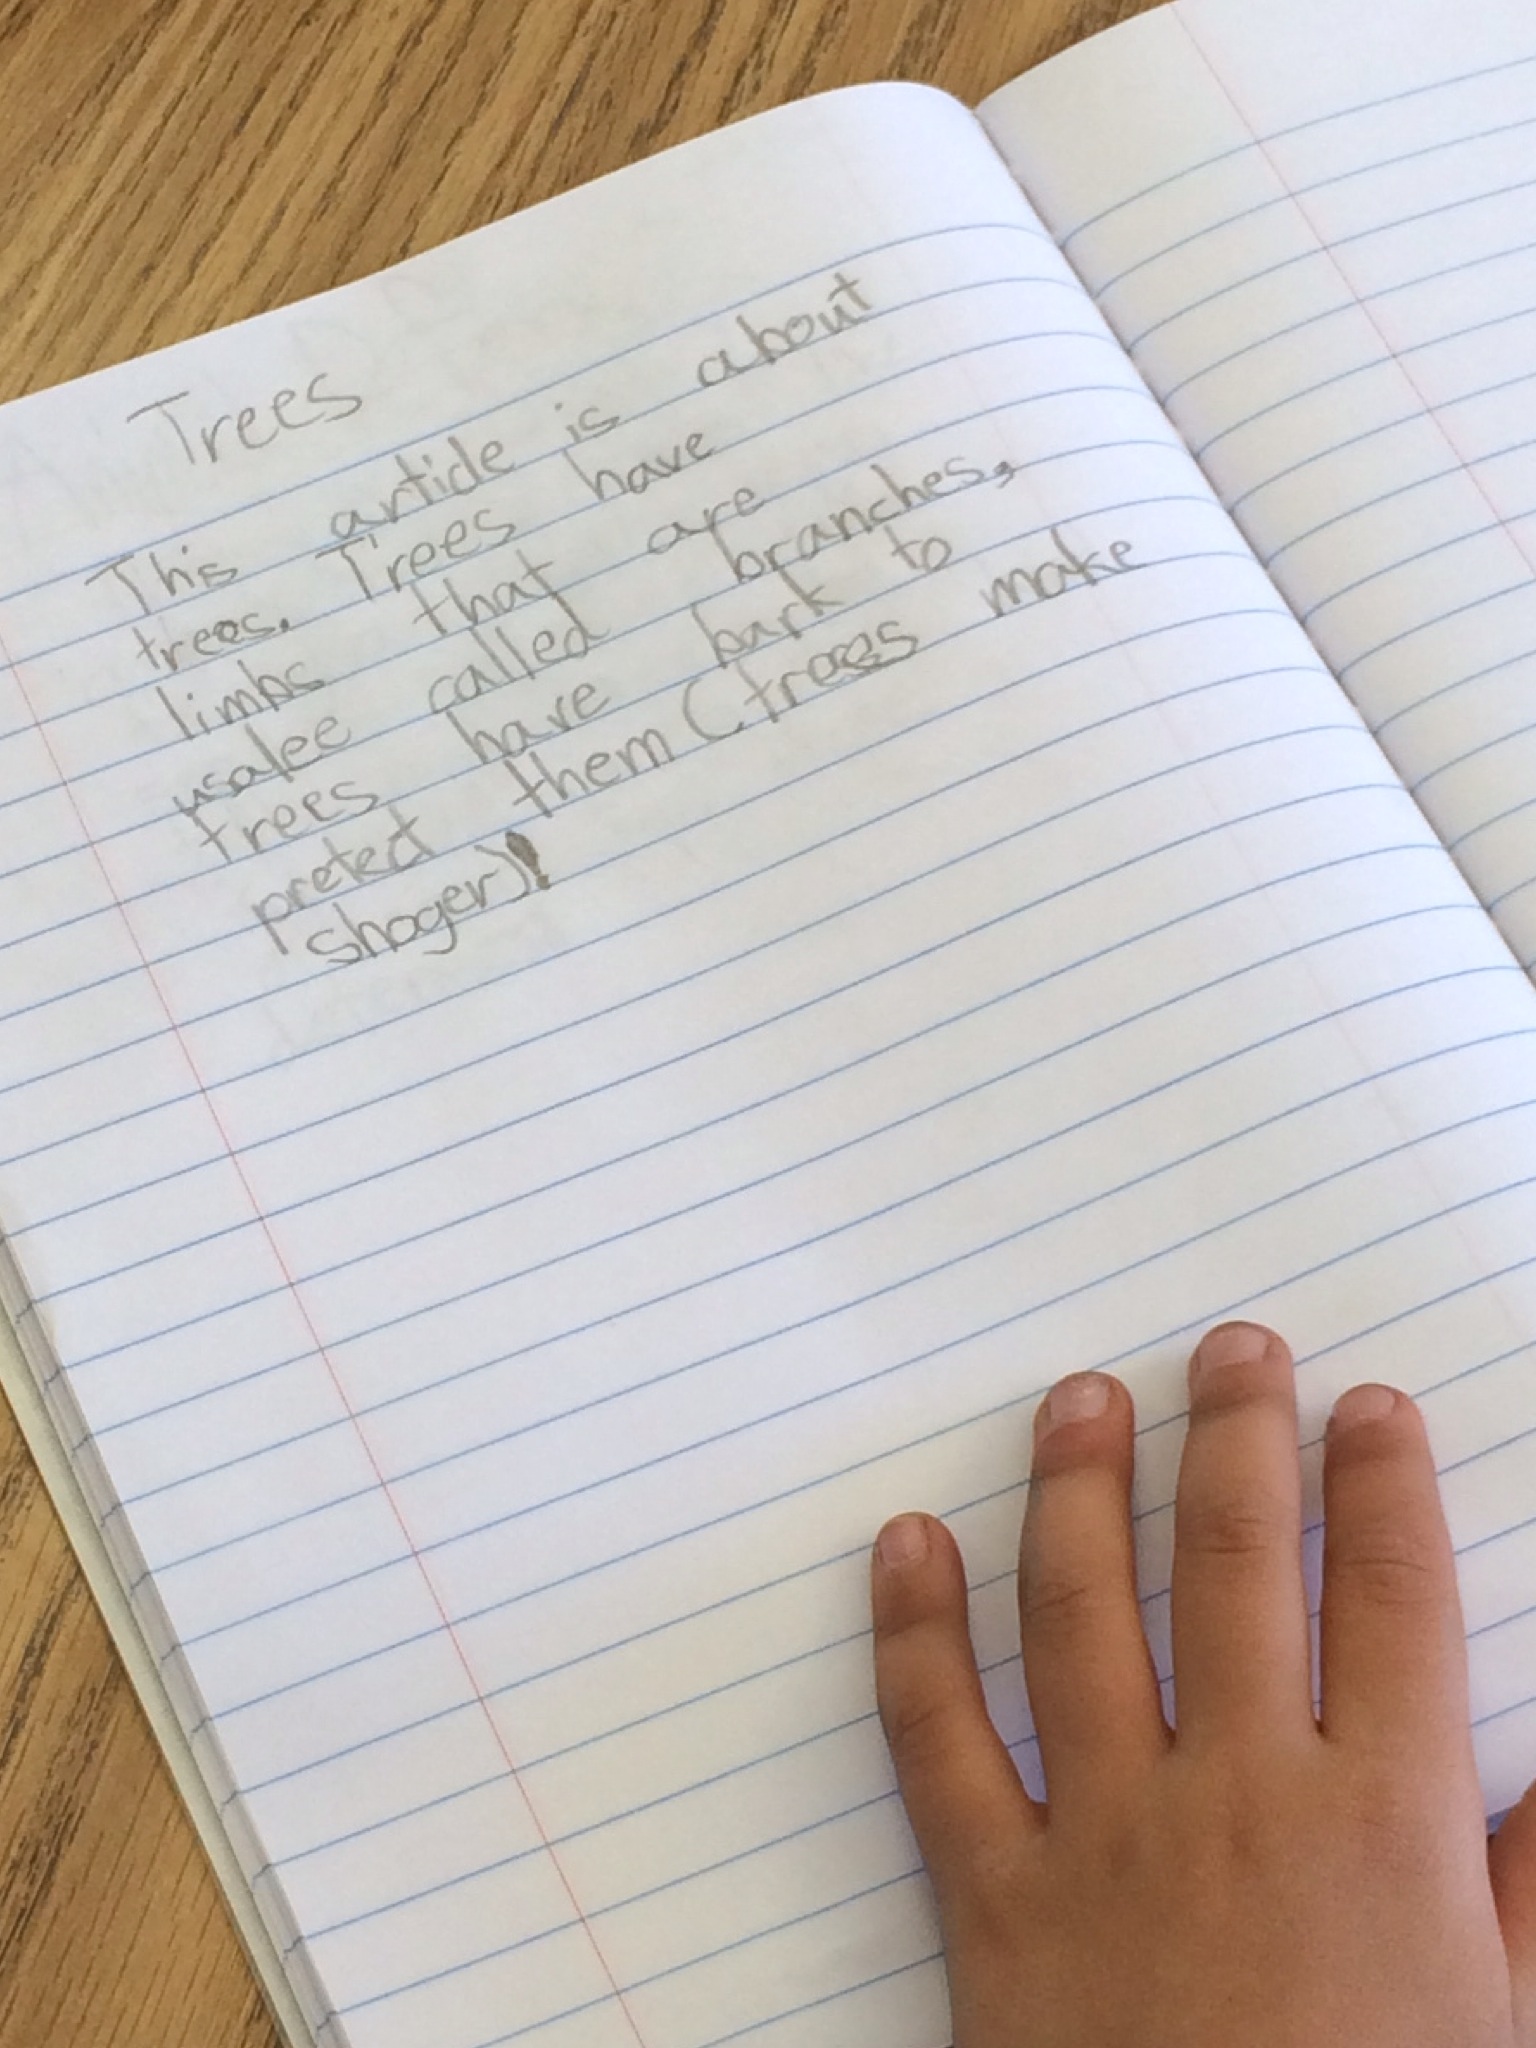 Trees
This article is about
trees. Trees have
limbs that are
usalee called branches,
trees have bark to
pretect them (trees make
shoger)!